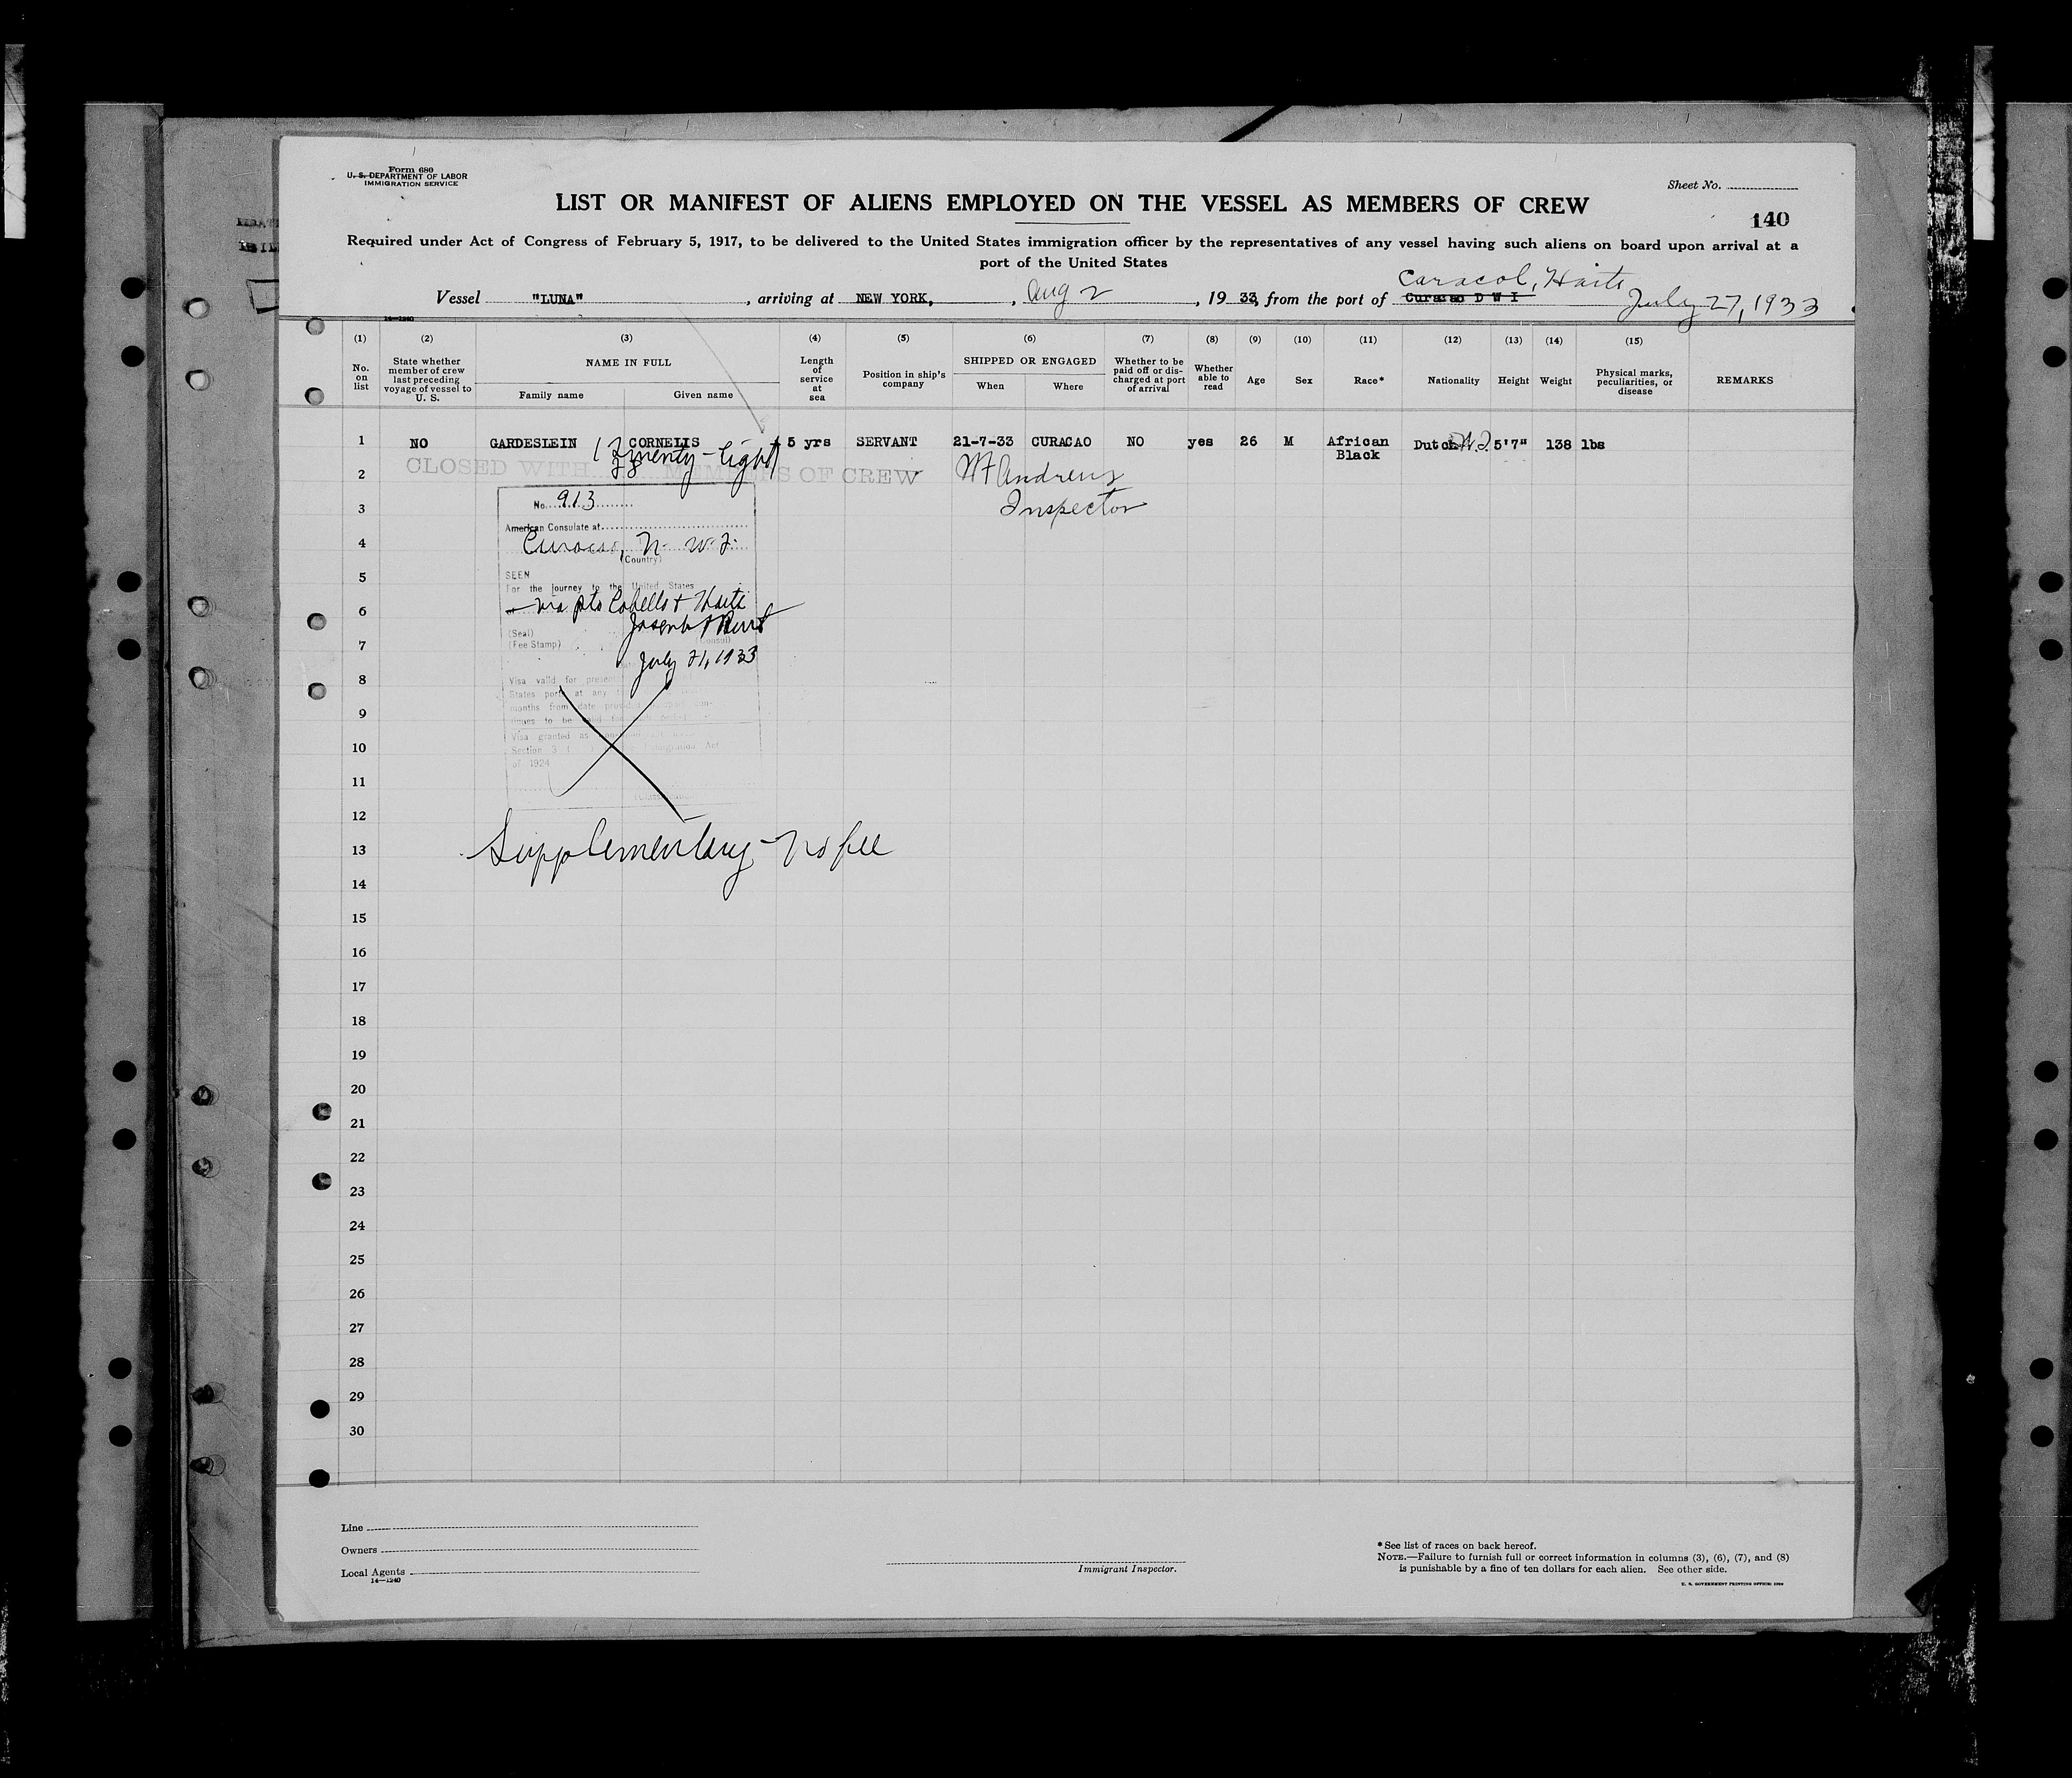 Form 680
U. S. DEPARTMENT OF LABOR
IMMIGRATION SERVICE
Sheet No.
LIST OR MANIFEST OF ALIENS EMPLOYED ON THE VESSEL AS MEMBERS OF CREW
140
Required under Act of Congress of February 5, 1917, to be delivered to the United States immigration officer by the representatives of any vessel having such aliens on board upon arrival at a
port of the United States
Caracol, Haiti
Vessel "LUNA", arriving at NEW YORK, Aug 2, 1933, from the port of Curacao D W I July 27, 1933
14—1240
(1) (2) (3) (4) (5) (6) (7) (8) (9) (10) (11) (12) (13) (14) (15)
No. on list
State whether member of crew last preceding voyage of vessel to U. S.
NAME IN FULL
Family name
Given name
Length of service at sea
Position in ship's company
SHIPPED OR ENGAGED
When
Where
Whether to be paid off or discharged at port of arrival
Whether able to read
Age
Sex
Race*
Nationality
Height
Weight
Physical marks, peculiarities, or disease
REMARKS
1 NO GARDESLEIN CORNELIS 5 yrs SERVANT 21-7-33 CURACAO NO yes 26 M African Black Dutch W.I. 5'7" 138 lbs
twenty-eight
28
2 CLOSED WITH MEMBERS OF CREW
Andrews
3 Inspector
No. 913
American Consulate at
4 Curacao, N. W. I.
(Country)
5 SEEN
For the journey to the United States
6 via pto Cabello & Haiti
(Seal)
7 (Fee Stamp)
July 21, 1933
8 Visa valid for
States port at any
9 months from date
Visa granted as
10 Section 3 Immigration Act
of 1924
11
12
13 Supplementary - No fee
14
15
16
17
18
19
20
21
22
23
24
25
26
27
28
29
30
Line
Owners
Local Agents
14—1240
Immigrant Inspector.
*See list of races on back hereof.
NOTE.—Failure to furnish full or correct information in columns (3), (6), (7), and (8)
is punishable by a fine of ten dollars for each alien. See other side.
U. S. GOVERNMENT PRINTING OFFICE: